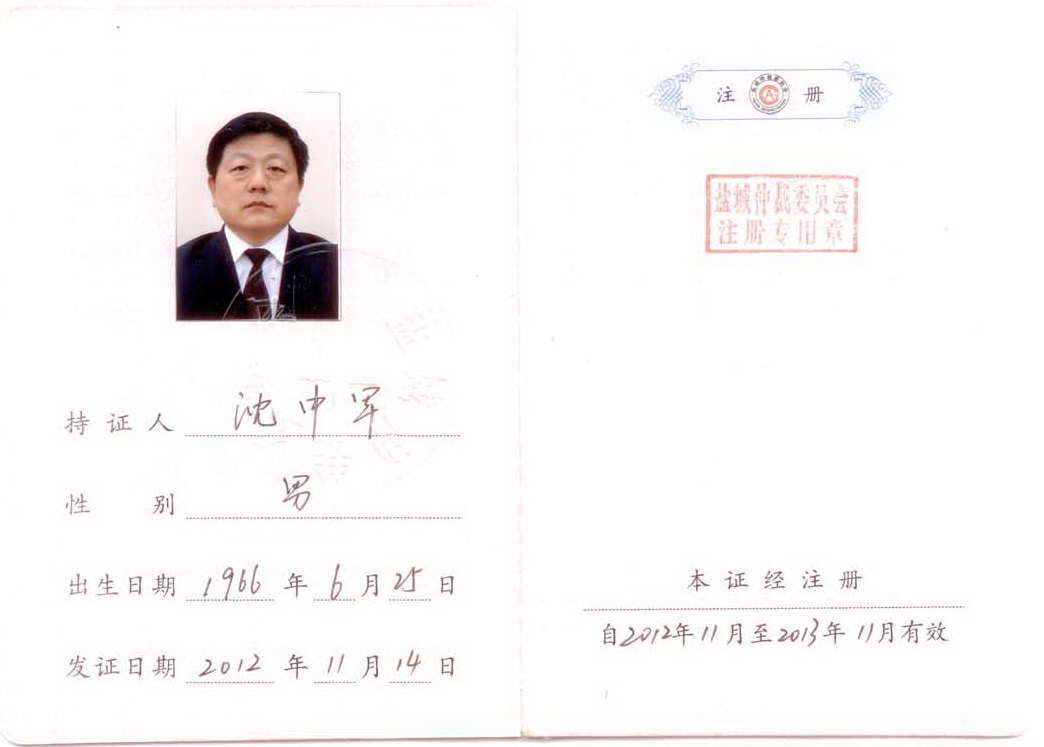 持证人 沈中军
性别 男
出生日期 1966年6月25日
发证日期 2012年11月14日
注册
盐城仲裁委员会
注册专用章
本证经注册
自2012年11月至2013年11月有效